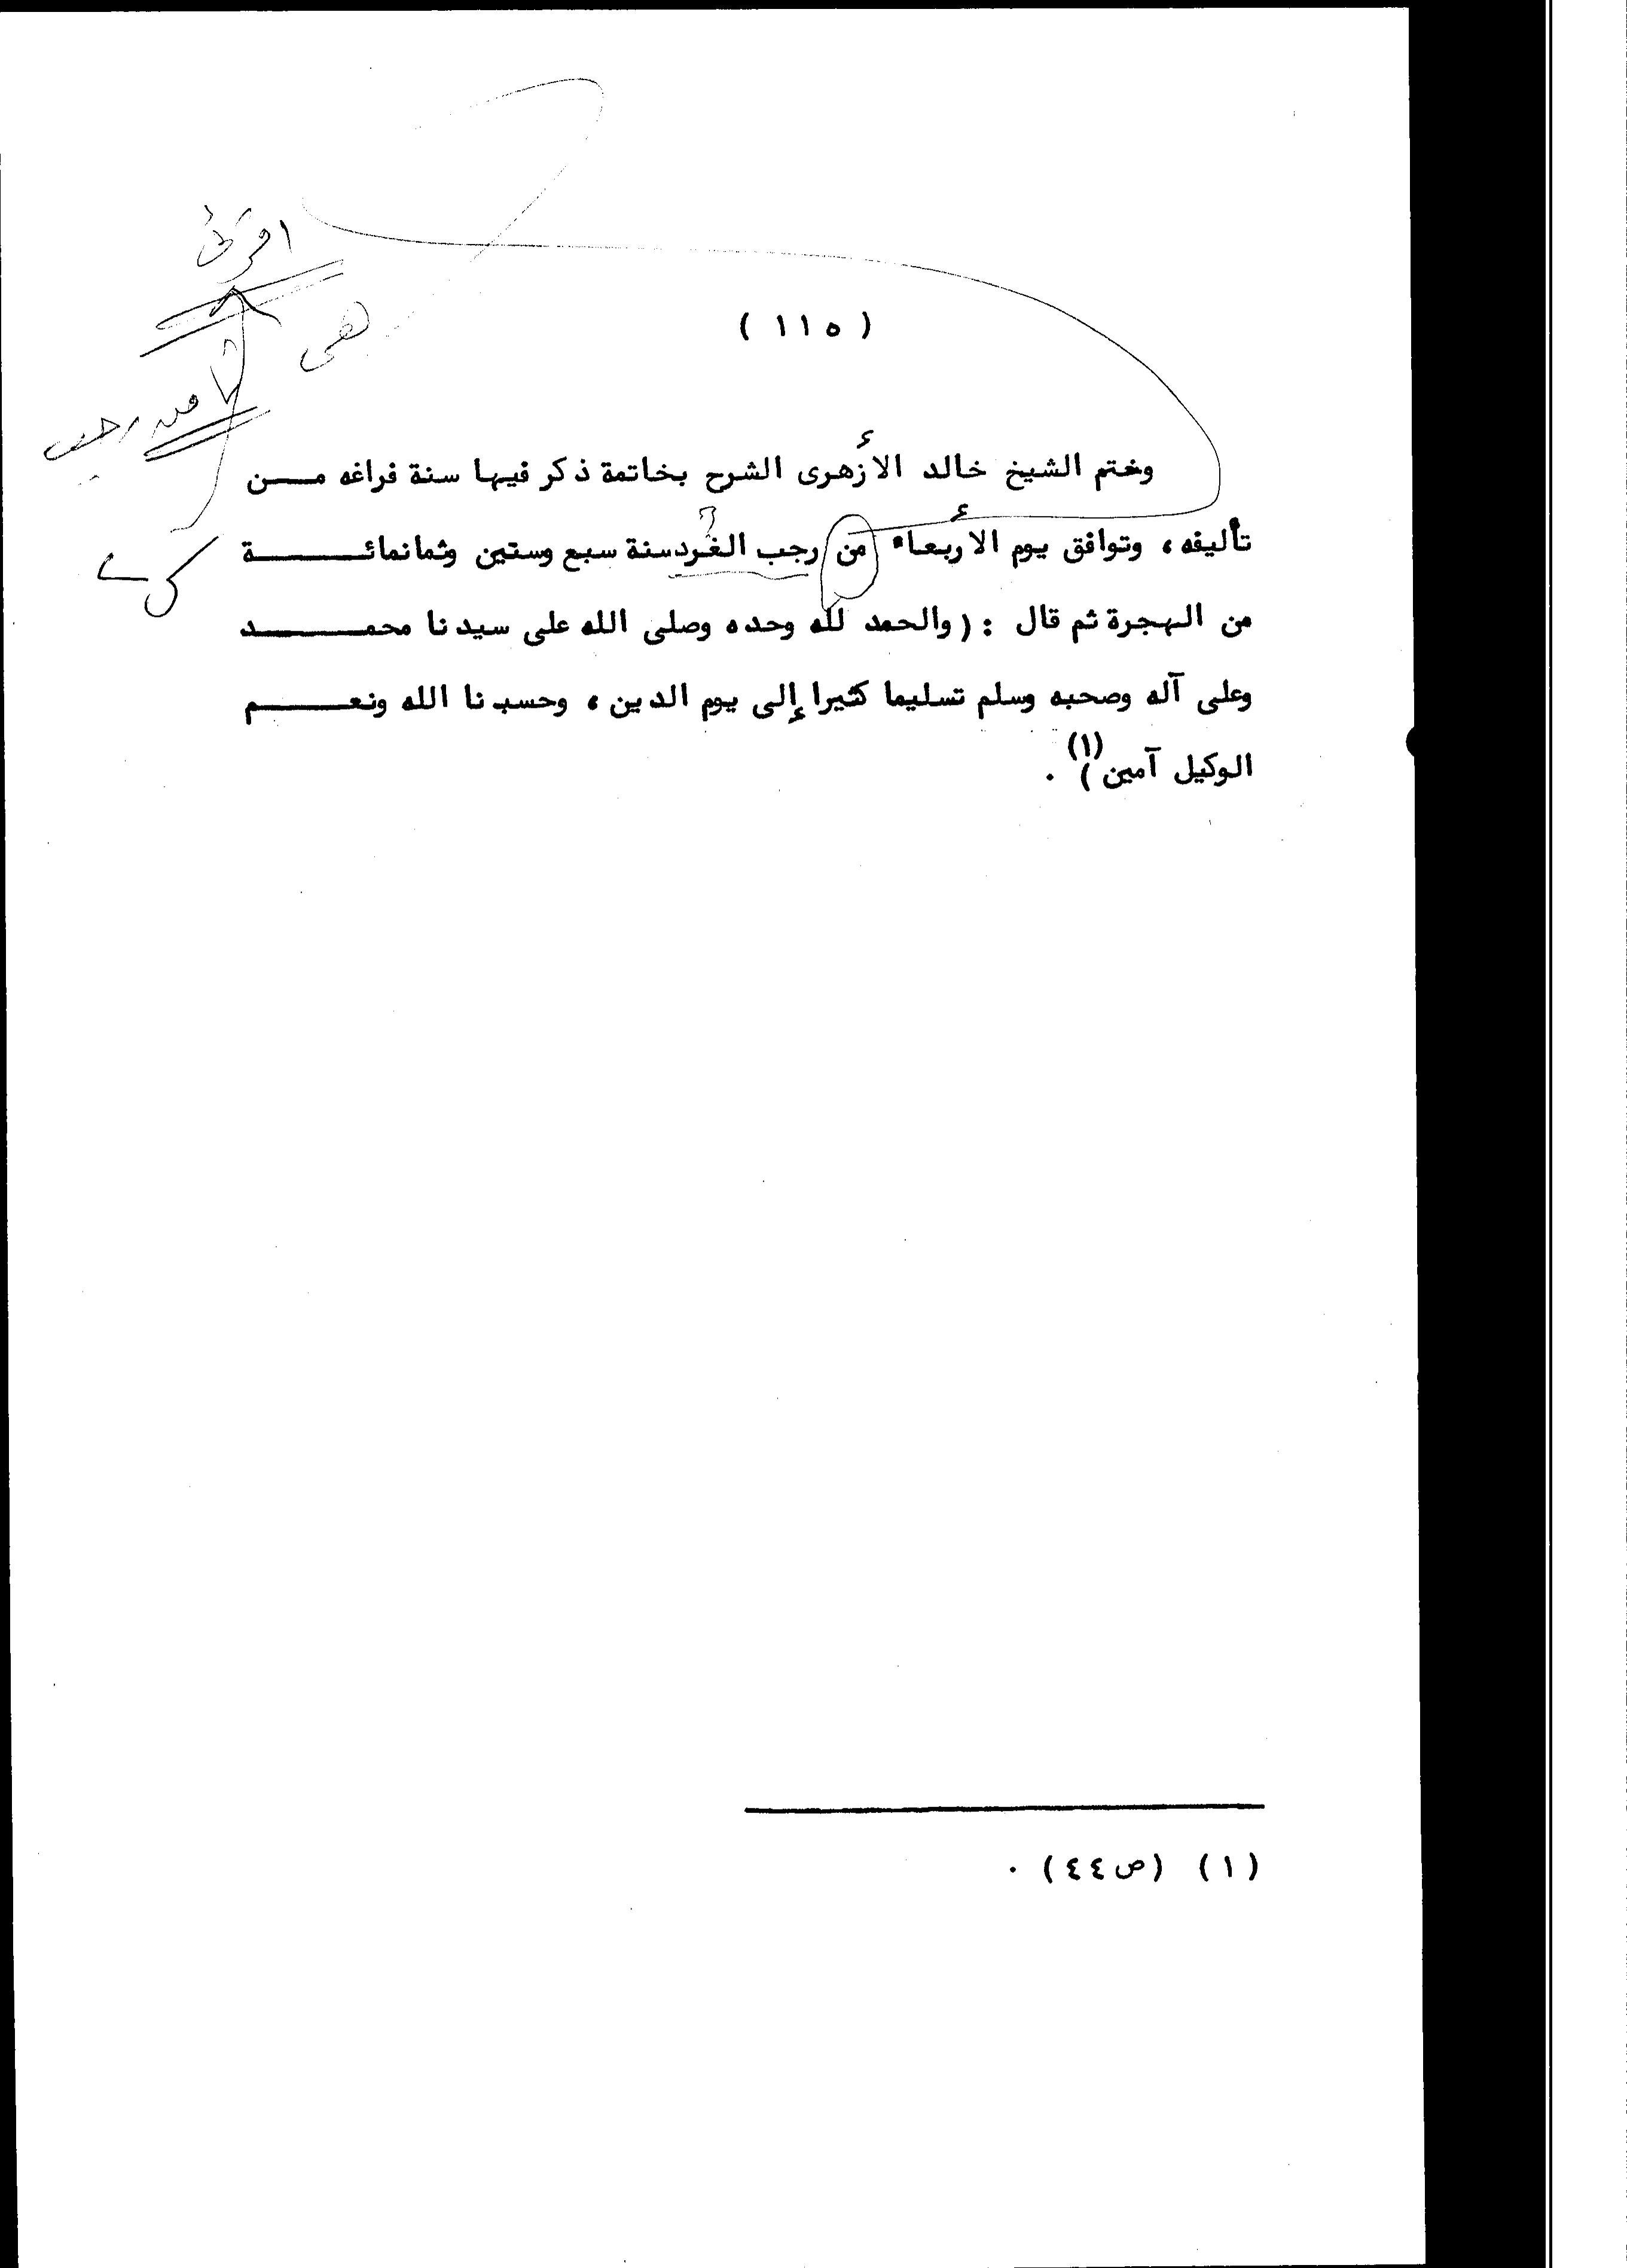 اقرئى
هى
ثامن رجب
( ١١٥ )
وختم الشيخ خالد الأزهرى الشرح بخاتمة ذكر فيها سنة فراغه مـــن
تأليفه ، وتوافق يوم الأربعاء من رجب الغرد سنة سبع وستين وثمانمائـــــــة
من الهجرة ثم قال : ( والحمد لله وحده وصلى الله على سيدنا محمـــــــد
وعلى آله وصحبه وسلم تسليما كثيرا إلى يوم الدين ، وحسبنا الله ونعـــــــم
الوكيل آمين ) (١) .
(١) (ص٤٤) .